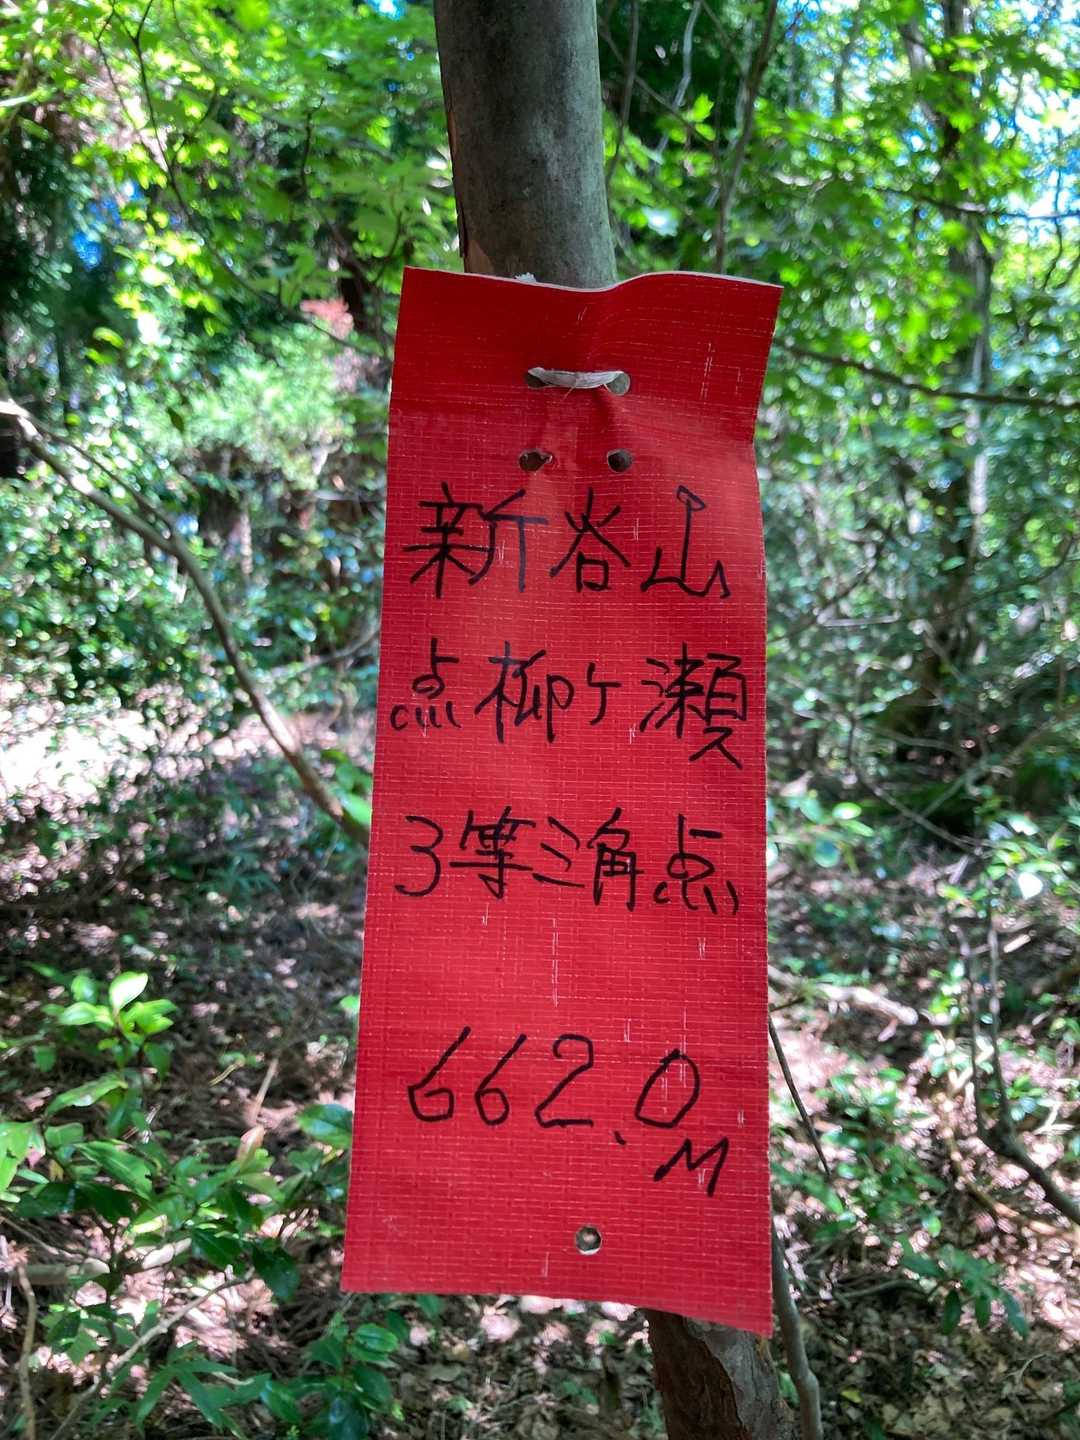 新谷山
点柳ケ瀬
3等三角点
662.0M